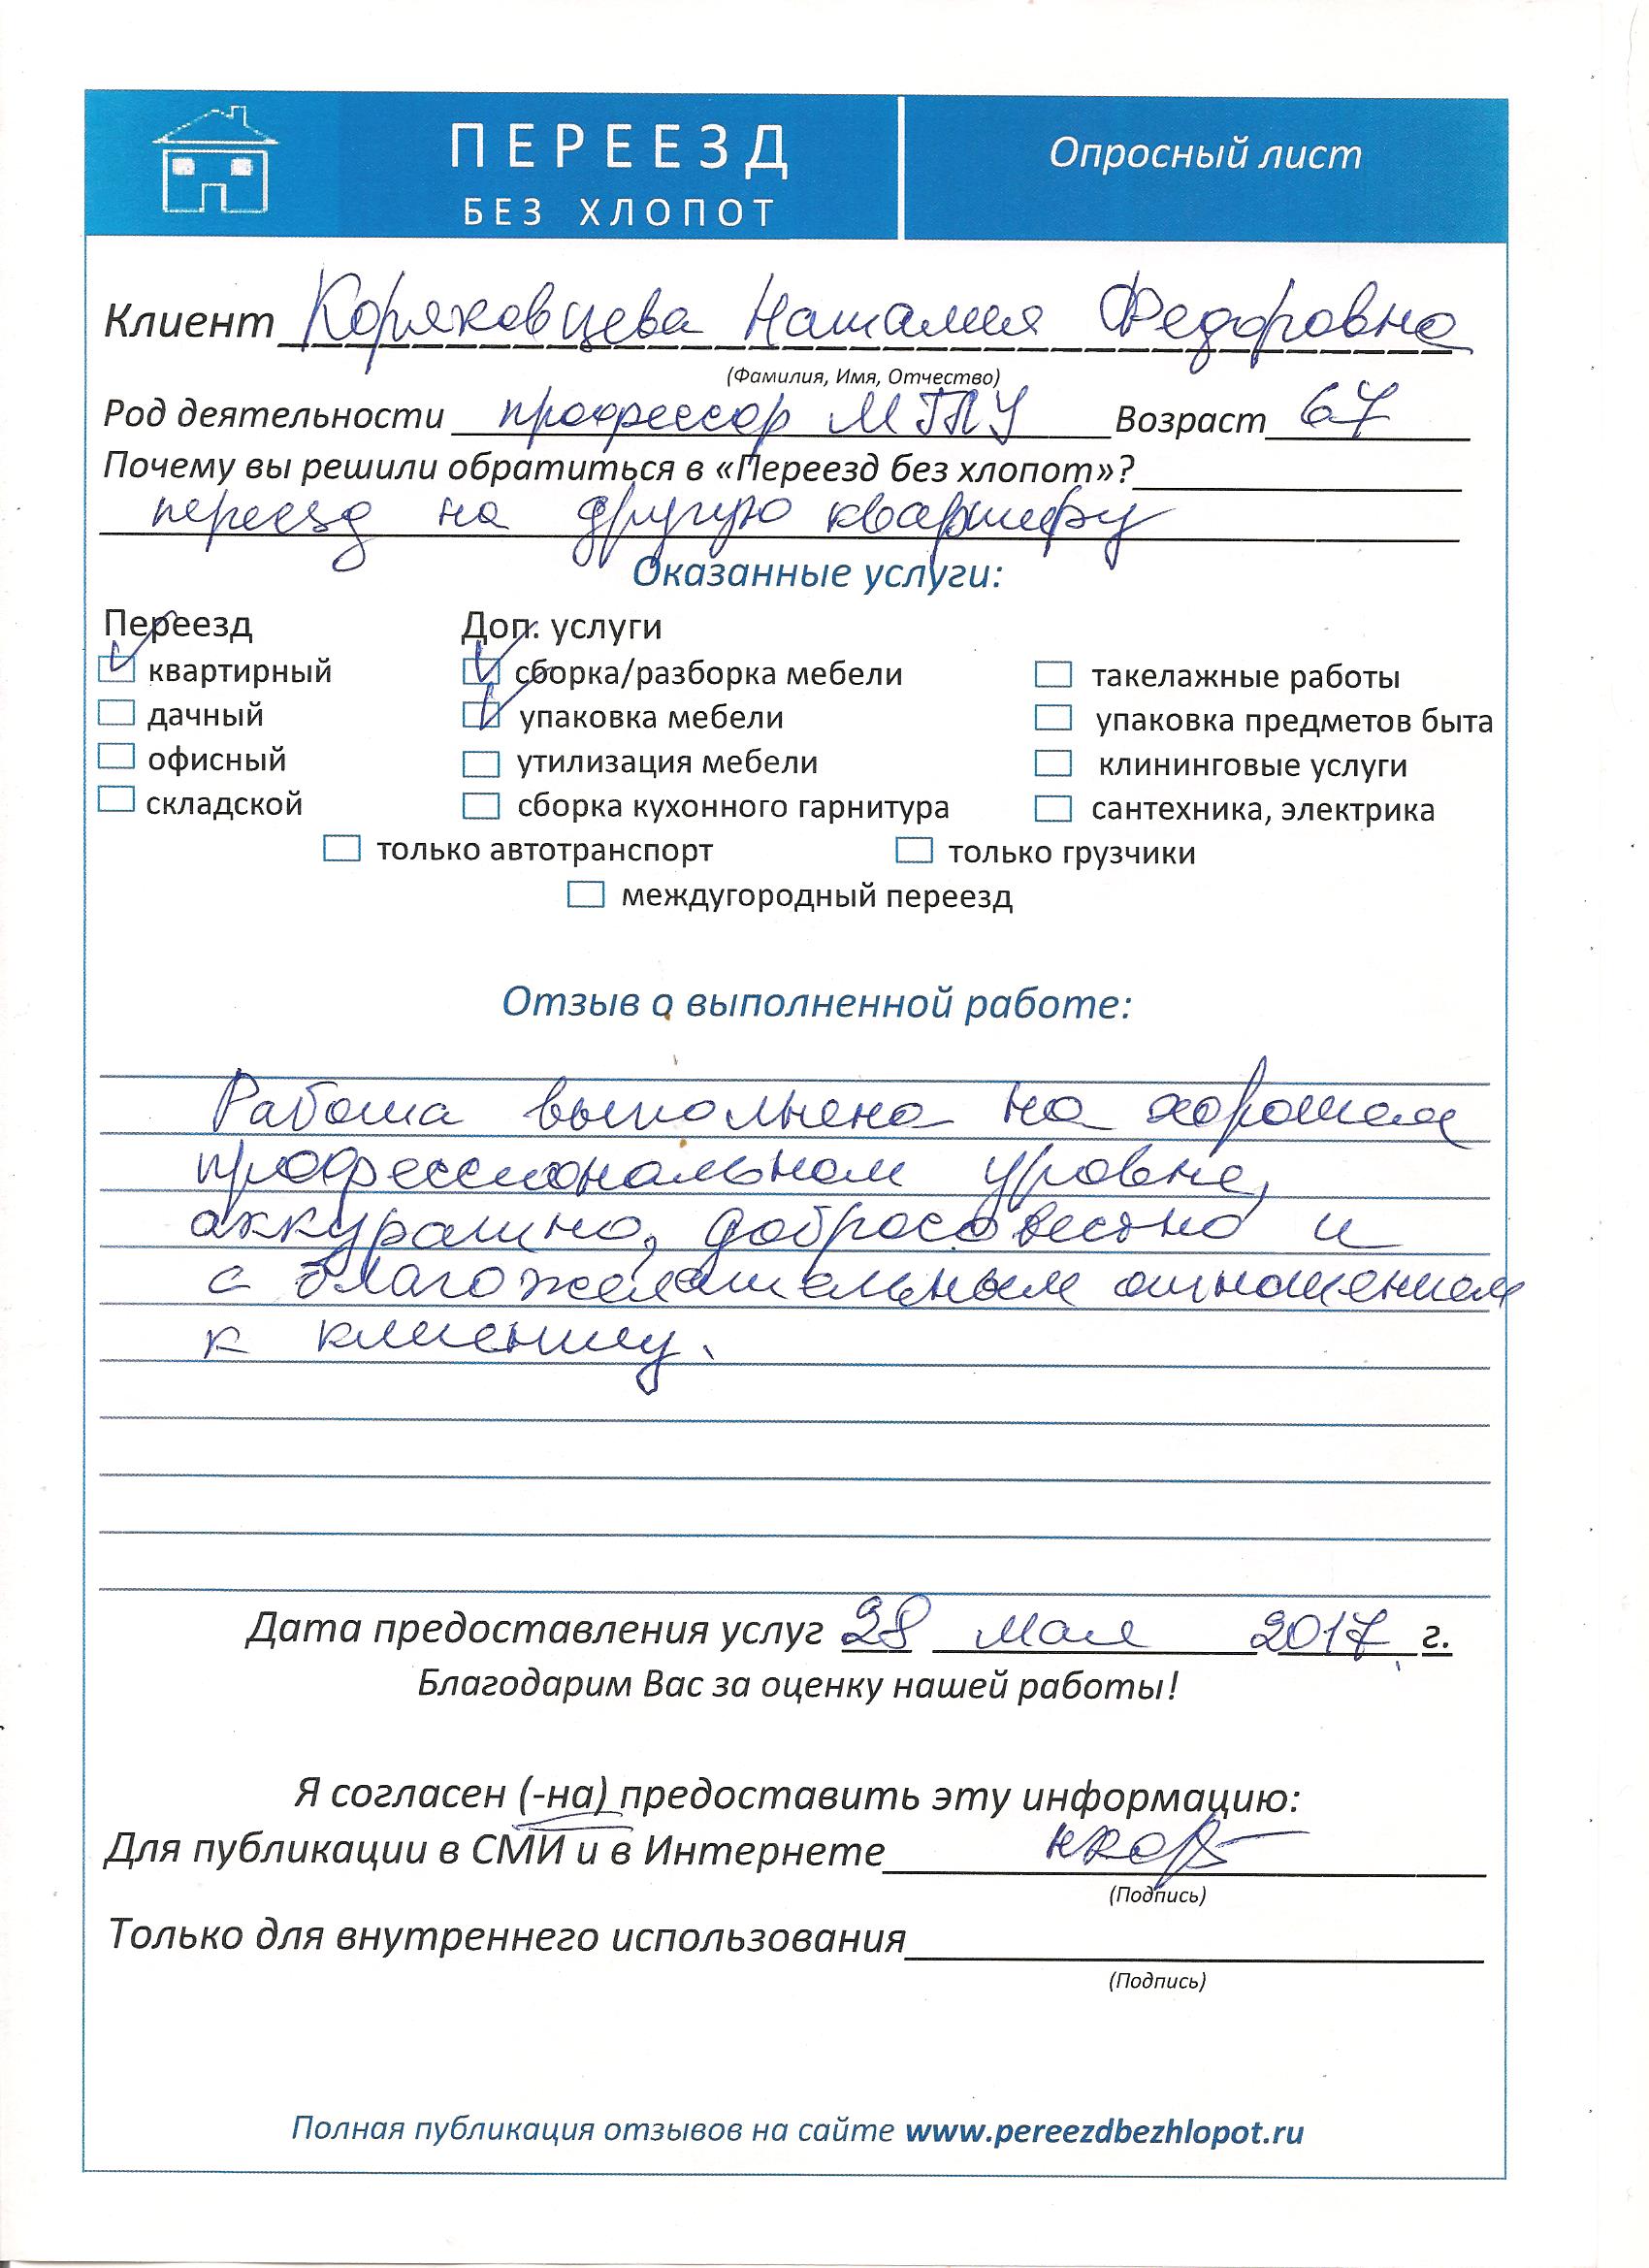 ПЕРЕЕЗД
БЕЗ ХЛОПОТ
Опросный лист
Клиент Коряковцева Наталия Федоровна
(Фамилия, Имя, Отчество)
Род деятельности профессор МГПУ Возраст 67
Почему вы решили обратиться в «Переезд без хлопот»?
переезд на другую квартиру
Оказанные услуги:
Переезд Доп. услуги
квартирный сборка/разборка мебели такелажные работы
дачный упаковка мебели упаковка предметов быта
офисный утилизация мебели клининговые услуги
складской сборка кухонного гарнитура сантехника, электрика
только автотранспорт только грузчики
междугородный переезд
Отзыв о выполненной работе:
Работа выполнена на хорошем
профессиональном уровне,
аккуратно, добросовестно и
с благожелательным отношением
к клиенту.
Дата предоставления услуг 28 мая 2017 г.
Благодарим Вас за оценку нашей работы!
Я согласен (-на) предоставить эту информацию:
Для публикации в СМИ и в Интернете
(Подпись)
Только для внутреннего использования
(Подпись)
Полная публикация отзывов на сайте www.pereezdbezhlopot.ru